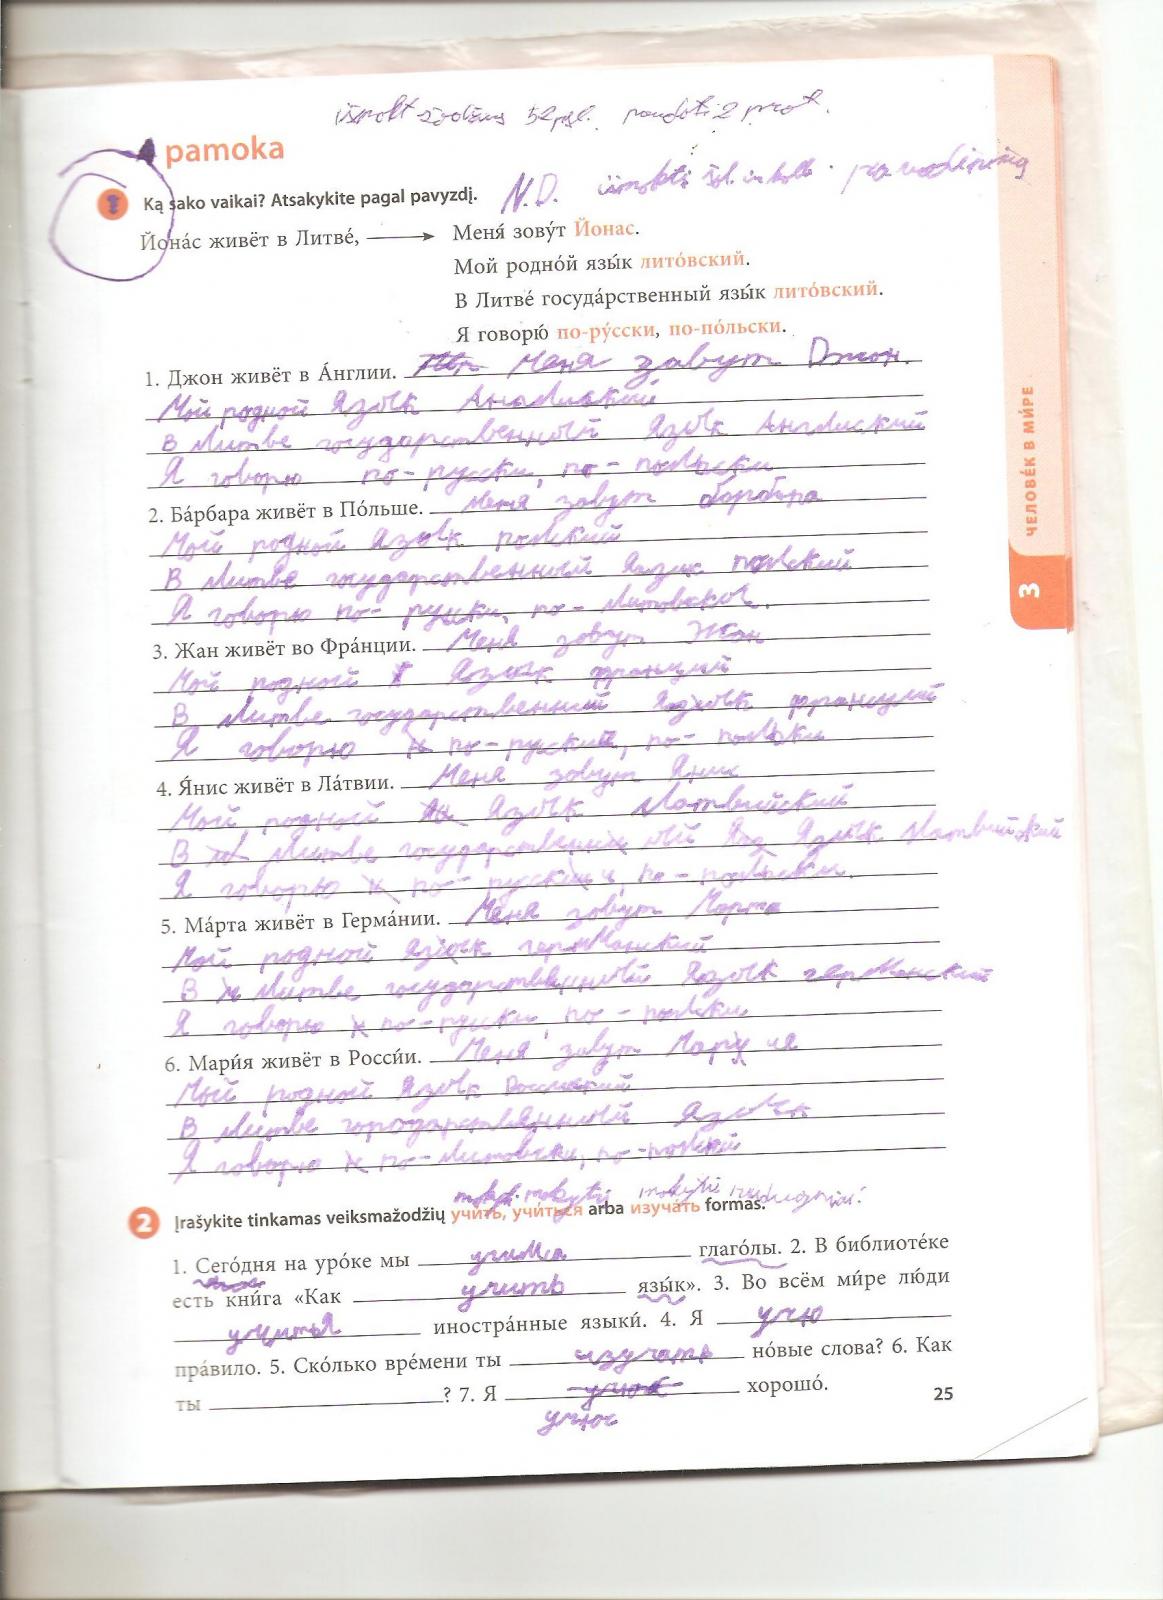 išmokt žodžius 52 psl.
pamoka
N.D. išmokti
1 Ką sako vaikai? Atsakykite pagal pavyzdį.
Йона́с живёт в Литве́, → Меня́ зову́т Йонас.
Мой родно́й язы́к лито́вский.
В Литве́ госуда́рственный язы́к лито́вский.
Я говорю́ по-ру́сски, по-по́льски.
1. Джон живёт в А́нглии. Меня завут Джон.
Мой родной язык
В Литве государственный язык Английский
Я говорю по-русски, по-польски
2. Ба́рбара живёт в По́льше. Меня завут барбара
Мой родной язык полский
В Литве государственный язык полский
Я говорю по-руски, по-
3. Жан живёт во Фра́нции. Меня зовут Жан
Мой родной язык франций
В Литве государственный язык француий
Я говорю по-руский, по-полски
4. Я́нис живёт в Ла́твии. Меня зовут Янис
Мой родной язык латвийский
В Литве государственный язык латвийский
Я говорю по-руский, по-полски.
5. Ма́рта живёт в Герма́нии. Меня зовут Марта
Мой родной язык германский
В Литве государственный язык германский
Я говорю по-руски, по-полски
6. Мари́я живёт в Росси́и. Меня завут
Мой родной язык
В Литве язык
Я говорю по-литовски, по-полский
ЧЕЛОВЕ́К В МИ́РЕ
3
2 Įrašykite tinkamas veiksmažodžių учи́ть, учи́ться arba изуча́ть formas.
1. Сего́дня на уро́ке мы учимся глаго́лы. 2. В библиоте́ке
есть кни́га «Как учить язы́к». 3. Во всём ми́ре лю́ди
иностра́нные языки́. 4. Я учю
пра́вило. 5. Ско́лько вре́мени ты изучать но́вые слова? 6. Как
ты ? 7. Я хорошо́.
учюс
25